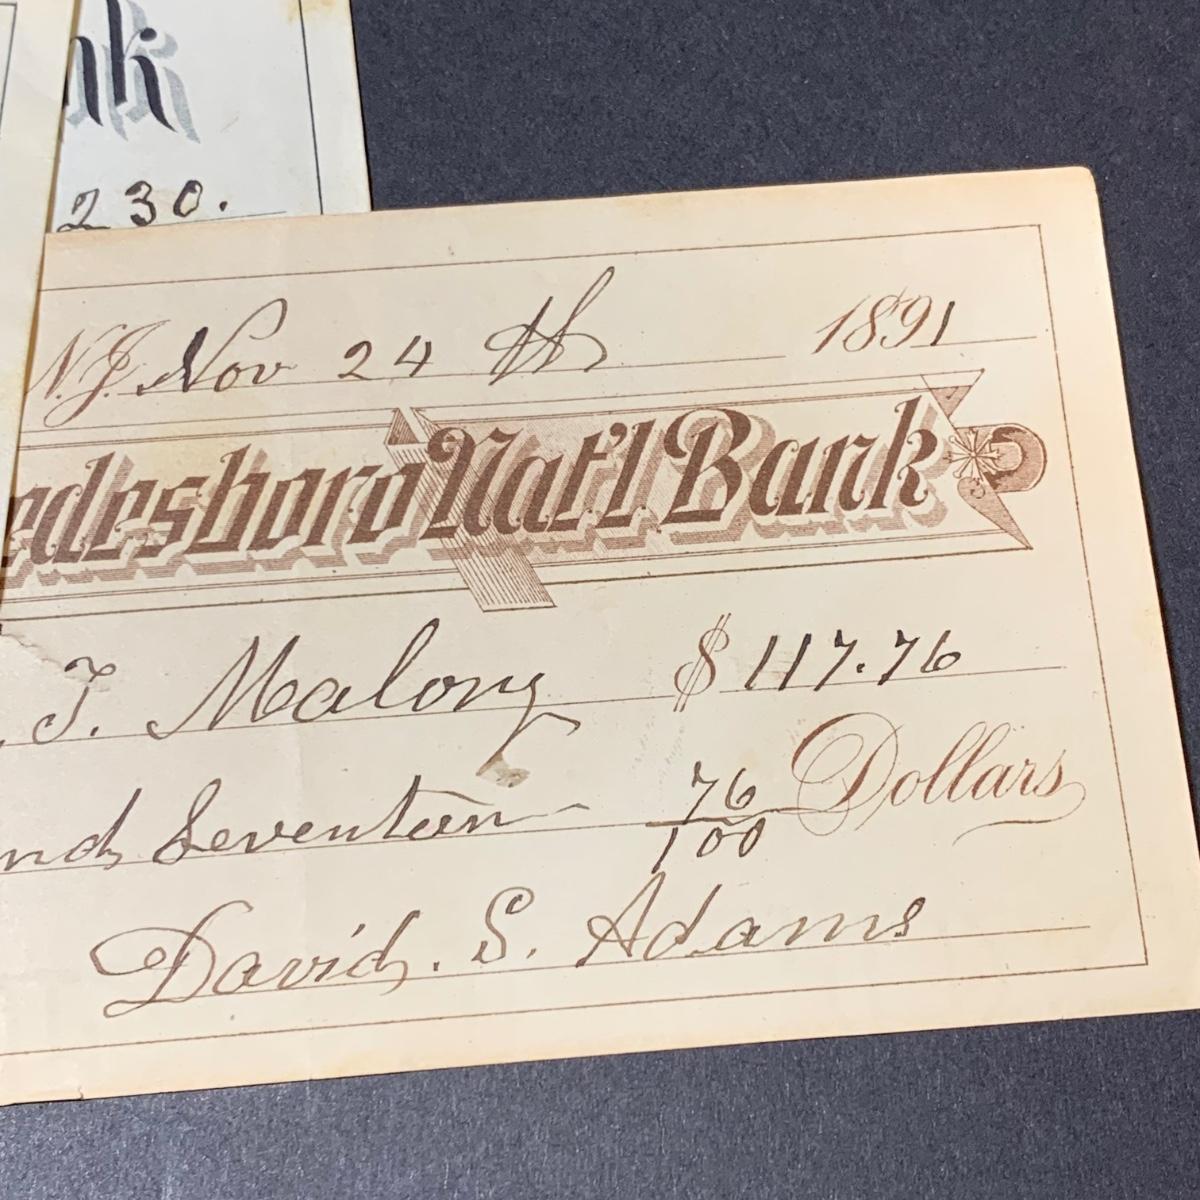 nk
230.
N.J. Nov 24th 1891
edesboro Nat'l Bank
. T. Malony $117.76
nd Seventeen 76/100 Dollars
David. S. Adams